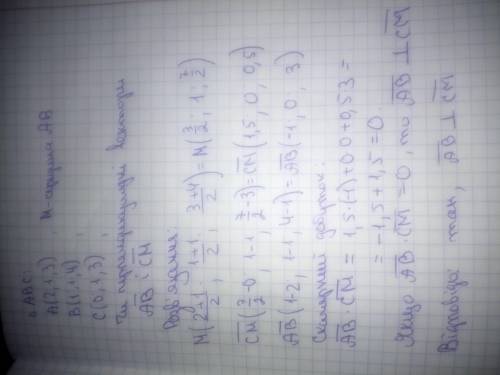 △ABC:
A(2,1,3) M-середина AB
B(1;1;4)
C(0,1,3)
Чи перпендикулярні вектори
AB і CM
Розв'язання:
M(2+1/2; 1+1/2; 3+4/2)=M(3/2; 1; 7/2)
CM(3/2-0; 1-1; 7/2-3)=CM(1,5; 0; 0,5)
AB(1-2; 1-1; 4-1)=AB(-1; 0; 3)
Скалярний добуток:
AB·CM = 1,5·(-1)+0·0+0,5·3 =
= -1,5+1,5=0.
Якщо AB·CM=0, то AB⊥CM
Відповідь: так, AB⊥CM